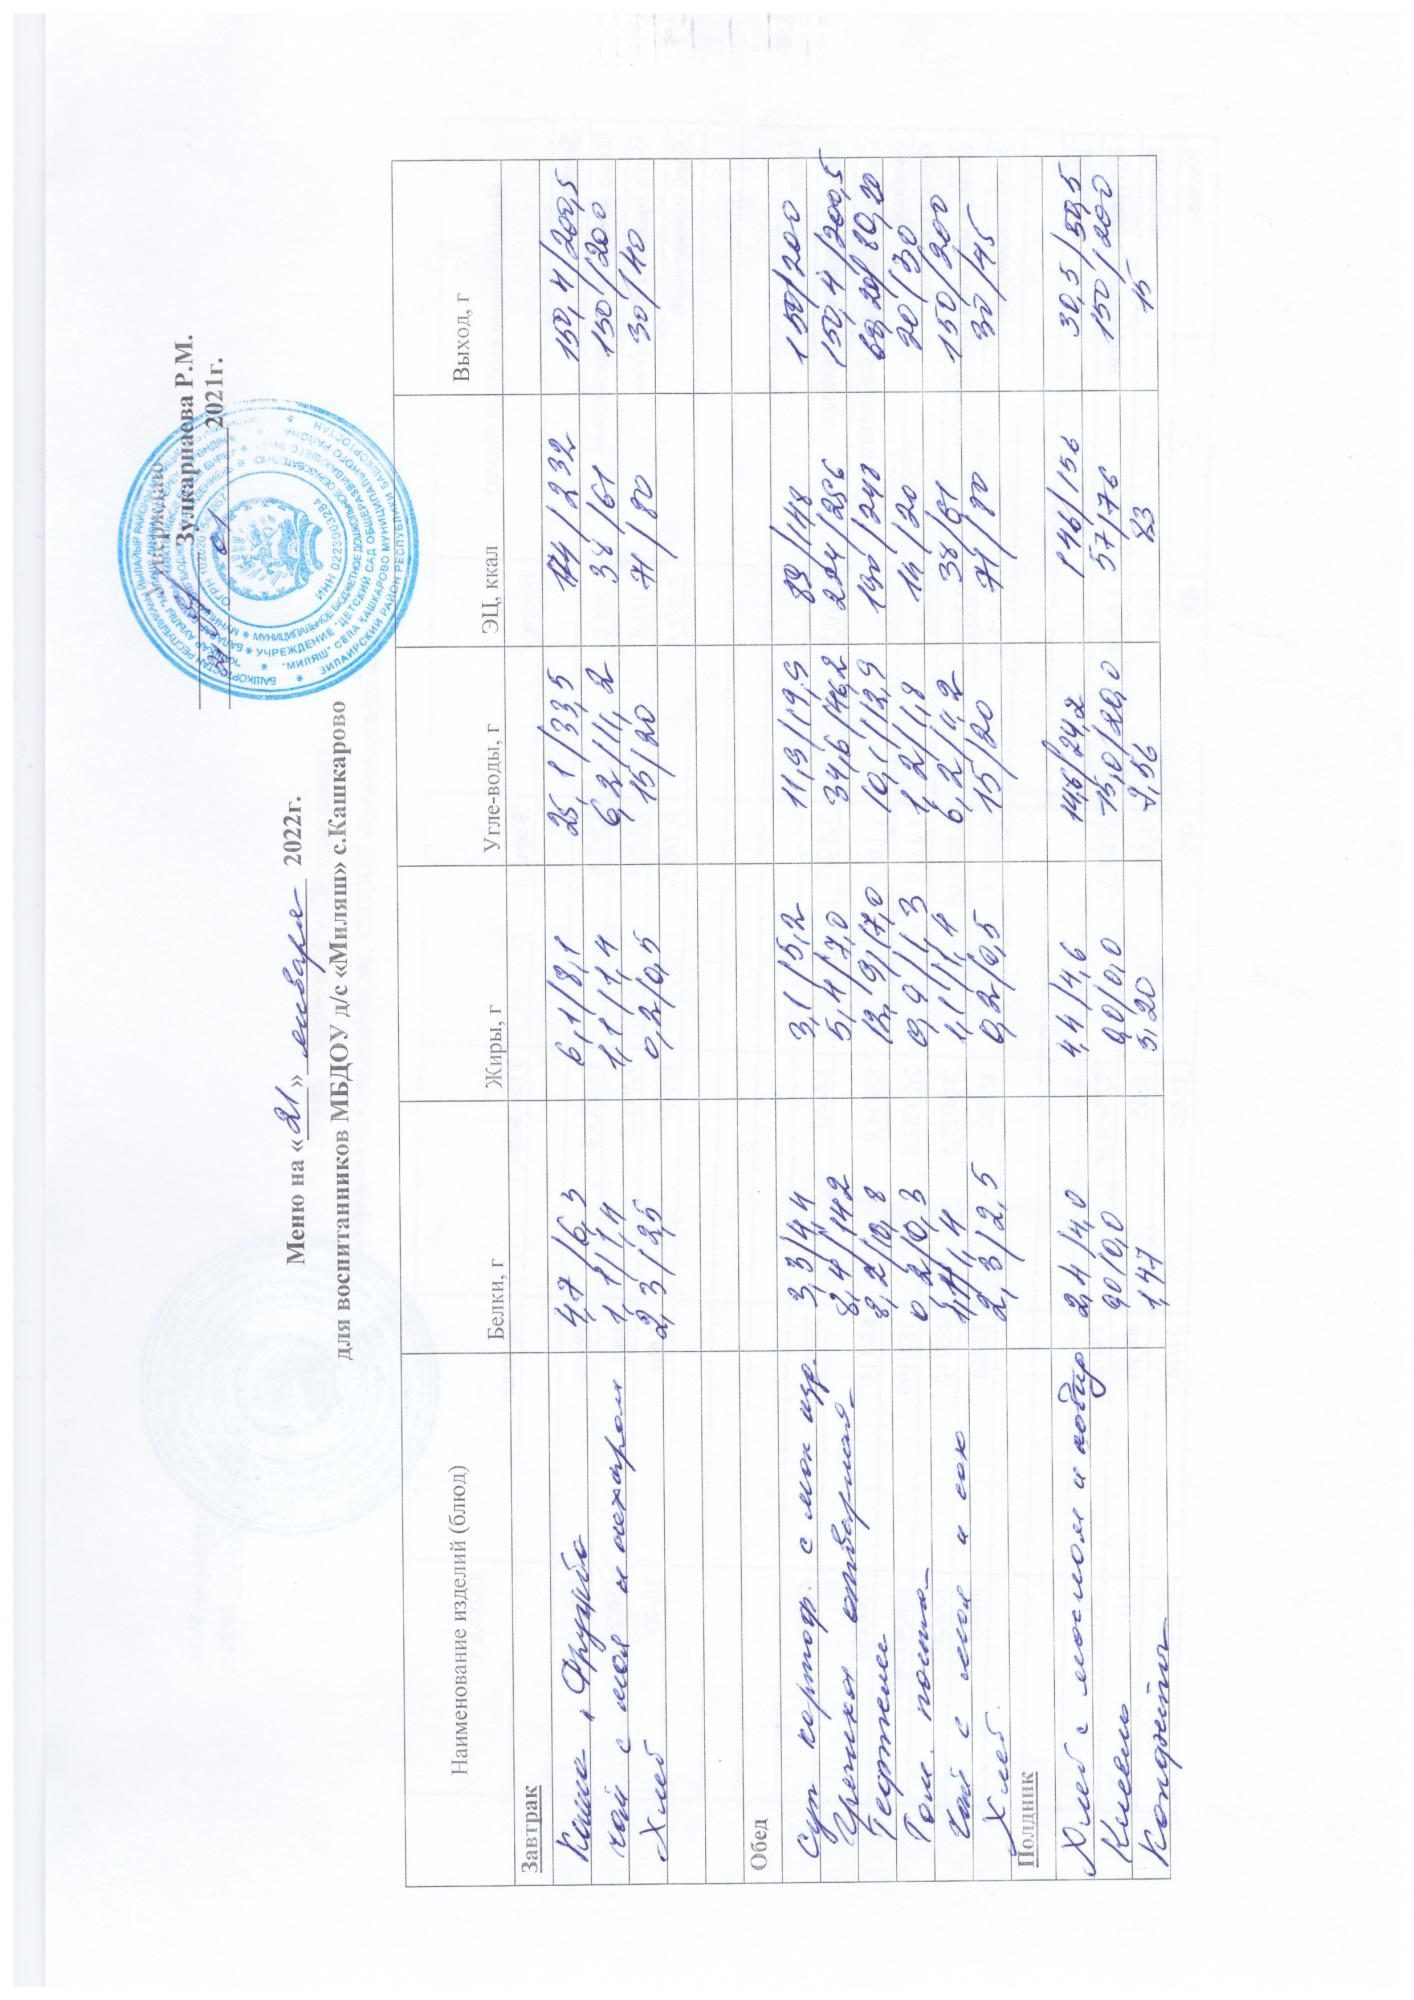 Утверждаю
Зулкарнаева Р.М.
2021г.
Меню на «21» января 2022г.
для воспитанников МБДОУ д/с «Миляш» с.Кашкарово
Наименование изделий (блюд) Белки, г Жиры, г Угле-воды, г ЭЦ, ккал Выход, г
Завтрак
Каша "Дружба 4,7/6,3 6,1/8,1 25,1/33,5 174/232 150,4/200,5
чай с мол и сахаром 1,1/1,4 1,1/1,4 6,2/11,2 38/61 150/200
Хлеб 2,3/2,5 0,2/0,5 15/20 71/80 30/40
Обед
Суп картоф. с мак изр. 3,3/4,4 3,1/5,2 11,3/19,9 89/148 150/200
Гречка отварная 8,4/14,2 5,4/7,0 34,6/46,2 224/256 150,4/200,5
Тефтели 8,2/10,8 12,9/17,0 10,1/12,9 190/248 60,20/80,20
Том. паста 0,2/0,3 0,9/1,3 1,2/1,8 14/20 20/30
Чай с мол и сах 1,1/1,4 1,1/1,4 6,2/11,2 38/61 150/200
Хлеб. 2,3/2,5 0,2/0,5 15/20 71/80 30/45
Полдник
Хлеб с маслом и повидр 2,4/4,0 4,4/4,6 14,6/24,2 146/156 30,5/50,5
Кисель 0,0/0,0 0,0/0,0 15,0/20,0 57/76 150/200
Конфеты 1,47 5,20 7,56 83 15
БАШКОРТОСТАН РЕСПУБЛИКАҺЫ
МУНИЦИПАЛЬНОЕ БЮДЖЕТНОЕ ДОШКОЛЬНОЕ ОБРАЗОВАТЕЛЬНОЕ
УЧРЕЖДЕНИЕ "ДЕТСКИЙ САД ОБЩЕРАЗВИВАЮЩЕГО ВИДА
"МИЛЯШ" СЕЛА КАШКАРОВО МУНИЦИПАЛЬНОГО РАЙОНА
ЗИЛАИРСКИЙ РАЙОН РЕСПУБЛИКИ БАШКОРТОСТАН
ИНН 0223003284